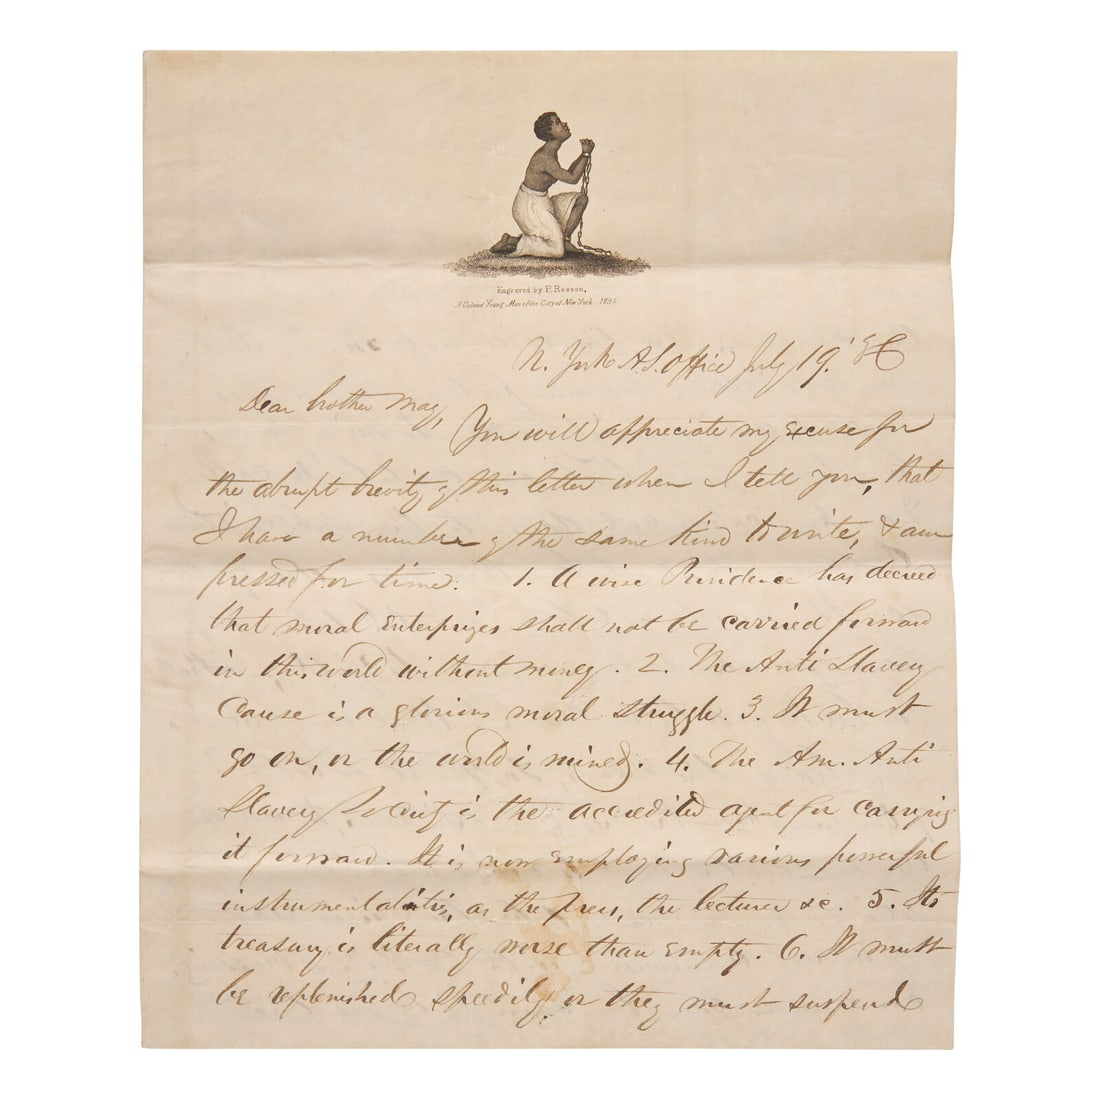 Engraved by P. Reason,
A Colored Young Man of the City of New York. 1835.
N. York A.S. Office July 19.
Dear brother May,
You will appreciate my excuse for
the abrupt brevity of this letter when I tell you, that
I have a number of the same kind to write, & am
pressed for time. 1. A wise Providence has decreed
that moral enterprizes shall not be carried forward
in this world without money. 2. The Anti Slavery
Cause is a glorious moral struggle. 3. It must
go on, or the world is ruined. 4. The Am. Anti
Slavery Society is the accredited agent for carrying
it forward. It is now employing various powerful
instrumentalities, as the press, the lecturer &c. 5. Its
treasury is literally worse than empty. 6. It must
be replenished speedily or they must suspend